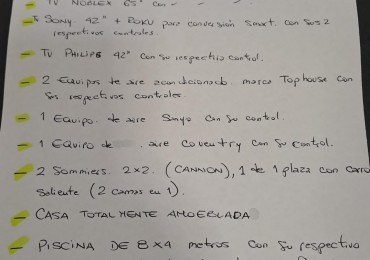 - TV NOBLEX 65" con
- TV Sony 42" + ROKU para conversión Smart. con sus 2
respectivos controles.
- TV PHILIPS 42" con su respectivo control.
- 2 Equipos de aire acondicionado marca Tophouse con
sus respectivos controles.
- 1 Equipo de aire Sanyo con su control.
- 1 Equipo de aire Coventry con su control.
- 2 Sommiers 2x2. (CANNON), 1 de 1 plaza con carro
saliente (2 camas en 1).
- CASA TOTALMENTE AMOEBLADA
- PISCINA DE 8x4 metros con su respectivo